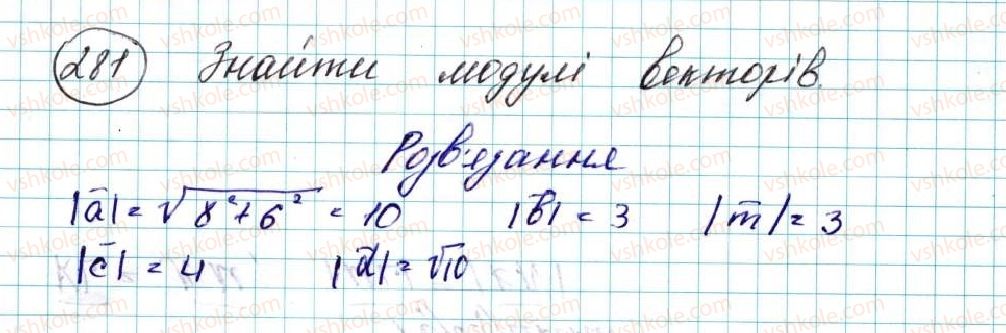 281 Знайти модулі векторів.
Розв'язання
|a̅| = √(8² + 6²) = 10 |b̅| = 3 |m̅| = 3
|c̅| = 4 |d̅| = √10